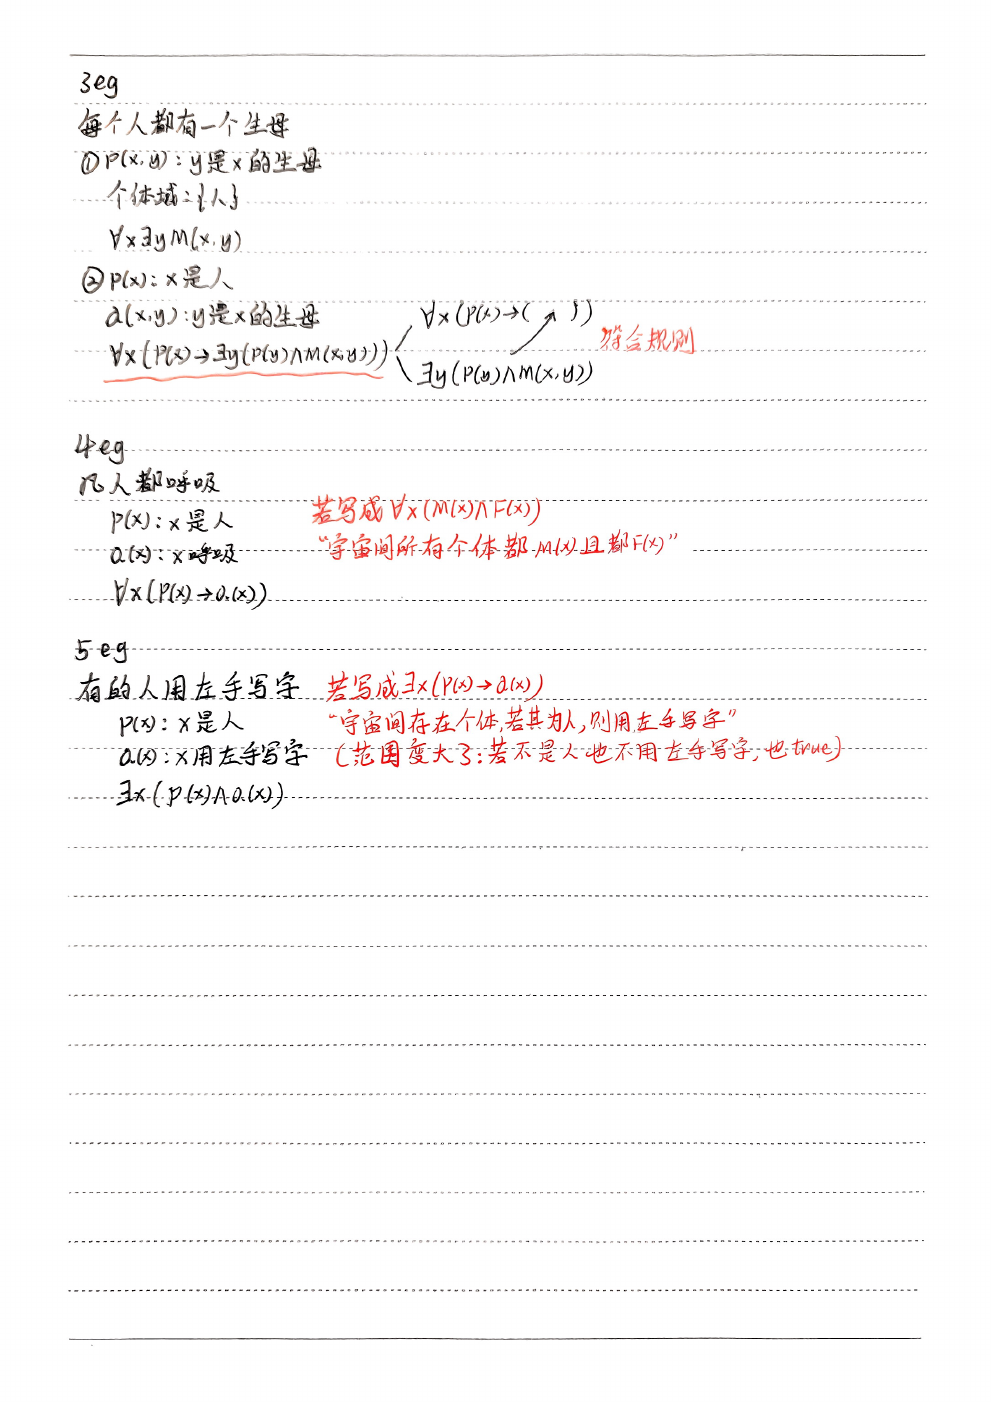 3eg
每个人都有一个生母
① P(x,y)：y是x的生母
个体域：{人}
∀x∃yM(x,y)
② P(x)：x是人
Q(x,y)：y是x的生母
∀x(P(x)→∃y(P(y)∧M(x,y)))
∀x(P(x)→( ))
∃y(P(y)∧M(x,y))
符合规则
4eg
凡人都呼吸
P(x)：x是人
Q(x)：x呼吸
∀x(P(x)→Q(x))
若写成∀x(M(x)∧F(x))
“宇宙间所有个体都M(x)且都F(x)”
5eg
有的人用左手写字
P(x)：x是人
Q(x)：x用左手写字
∃x(P(x)∧Q(x))
若写成∃x(P(x)→Q(x))
“宇宙间存在个体,若其为人,则用左手写字”
(范围变大了:若不是人也不用左手写字,也true)